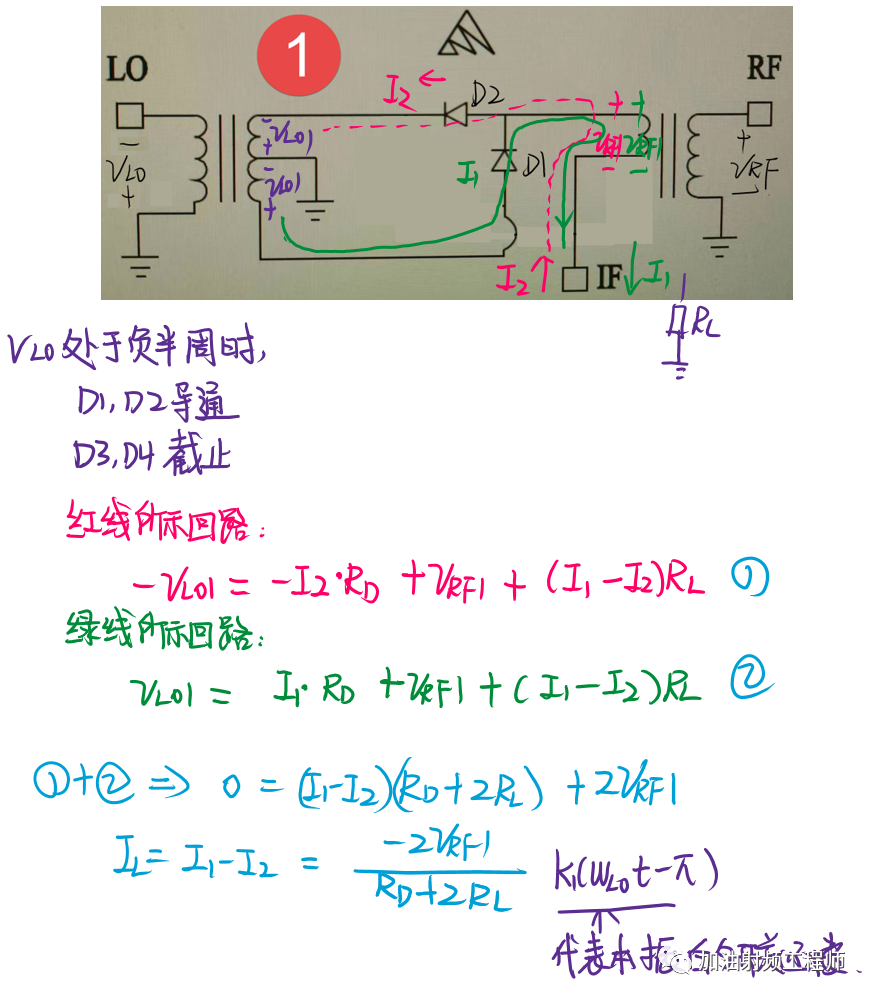 1
LO
RF
I₂ ←
D2
+ +
- VLO1 +
- VLO +
I₁
D1
VRF1 VRF1
+ VRF -
- VLO1 +
- -
I₂
IF
I₁
RL
VLO处于负半周时,
D1, D2 导通
D3, D4 截止
红线所示回路:
-VLO1 = -I2·RD + VRF1 + (I1-I2)RL ①
绿线所示回路:
VLO1 = I1·RD + VRF1 + (I1-I2)RL ②
①+② ⇒ 0 = (I1-I2)(RD+2RL) + 2VRF1
IL = I1-I2 = -2VRF1 / (RD+2RL) K1(ωLOt-π)
代表本振
加油射频工程师